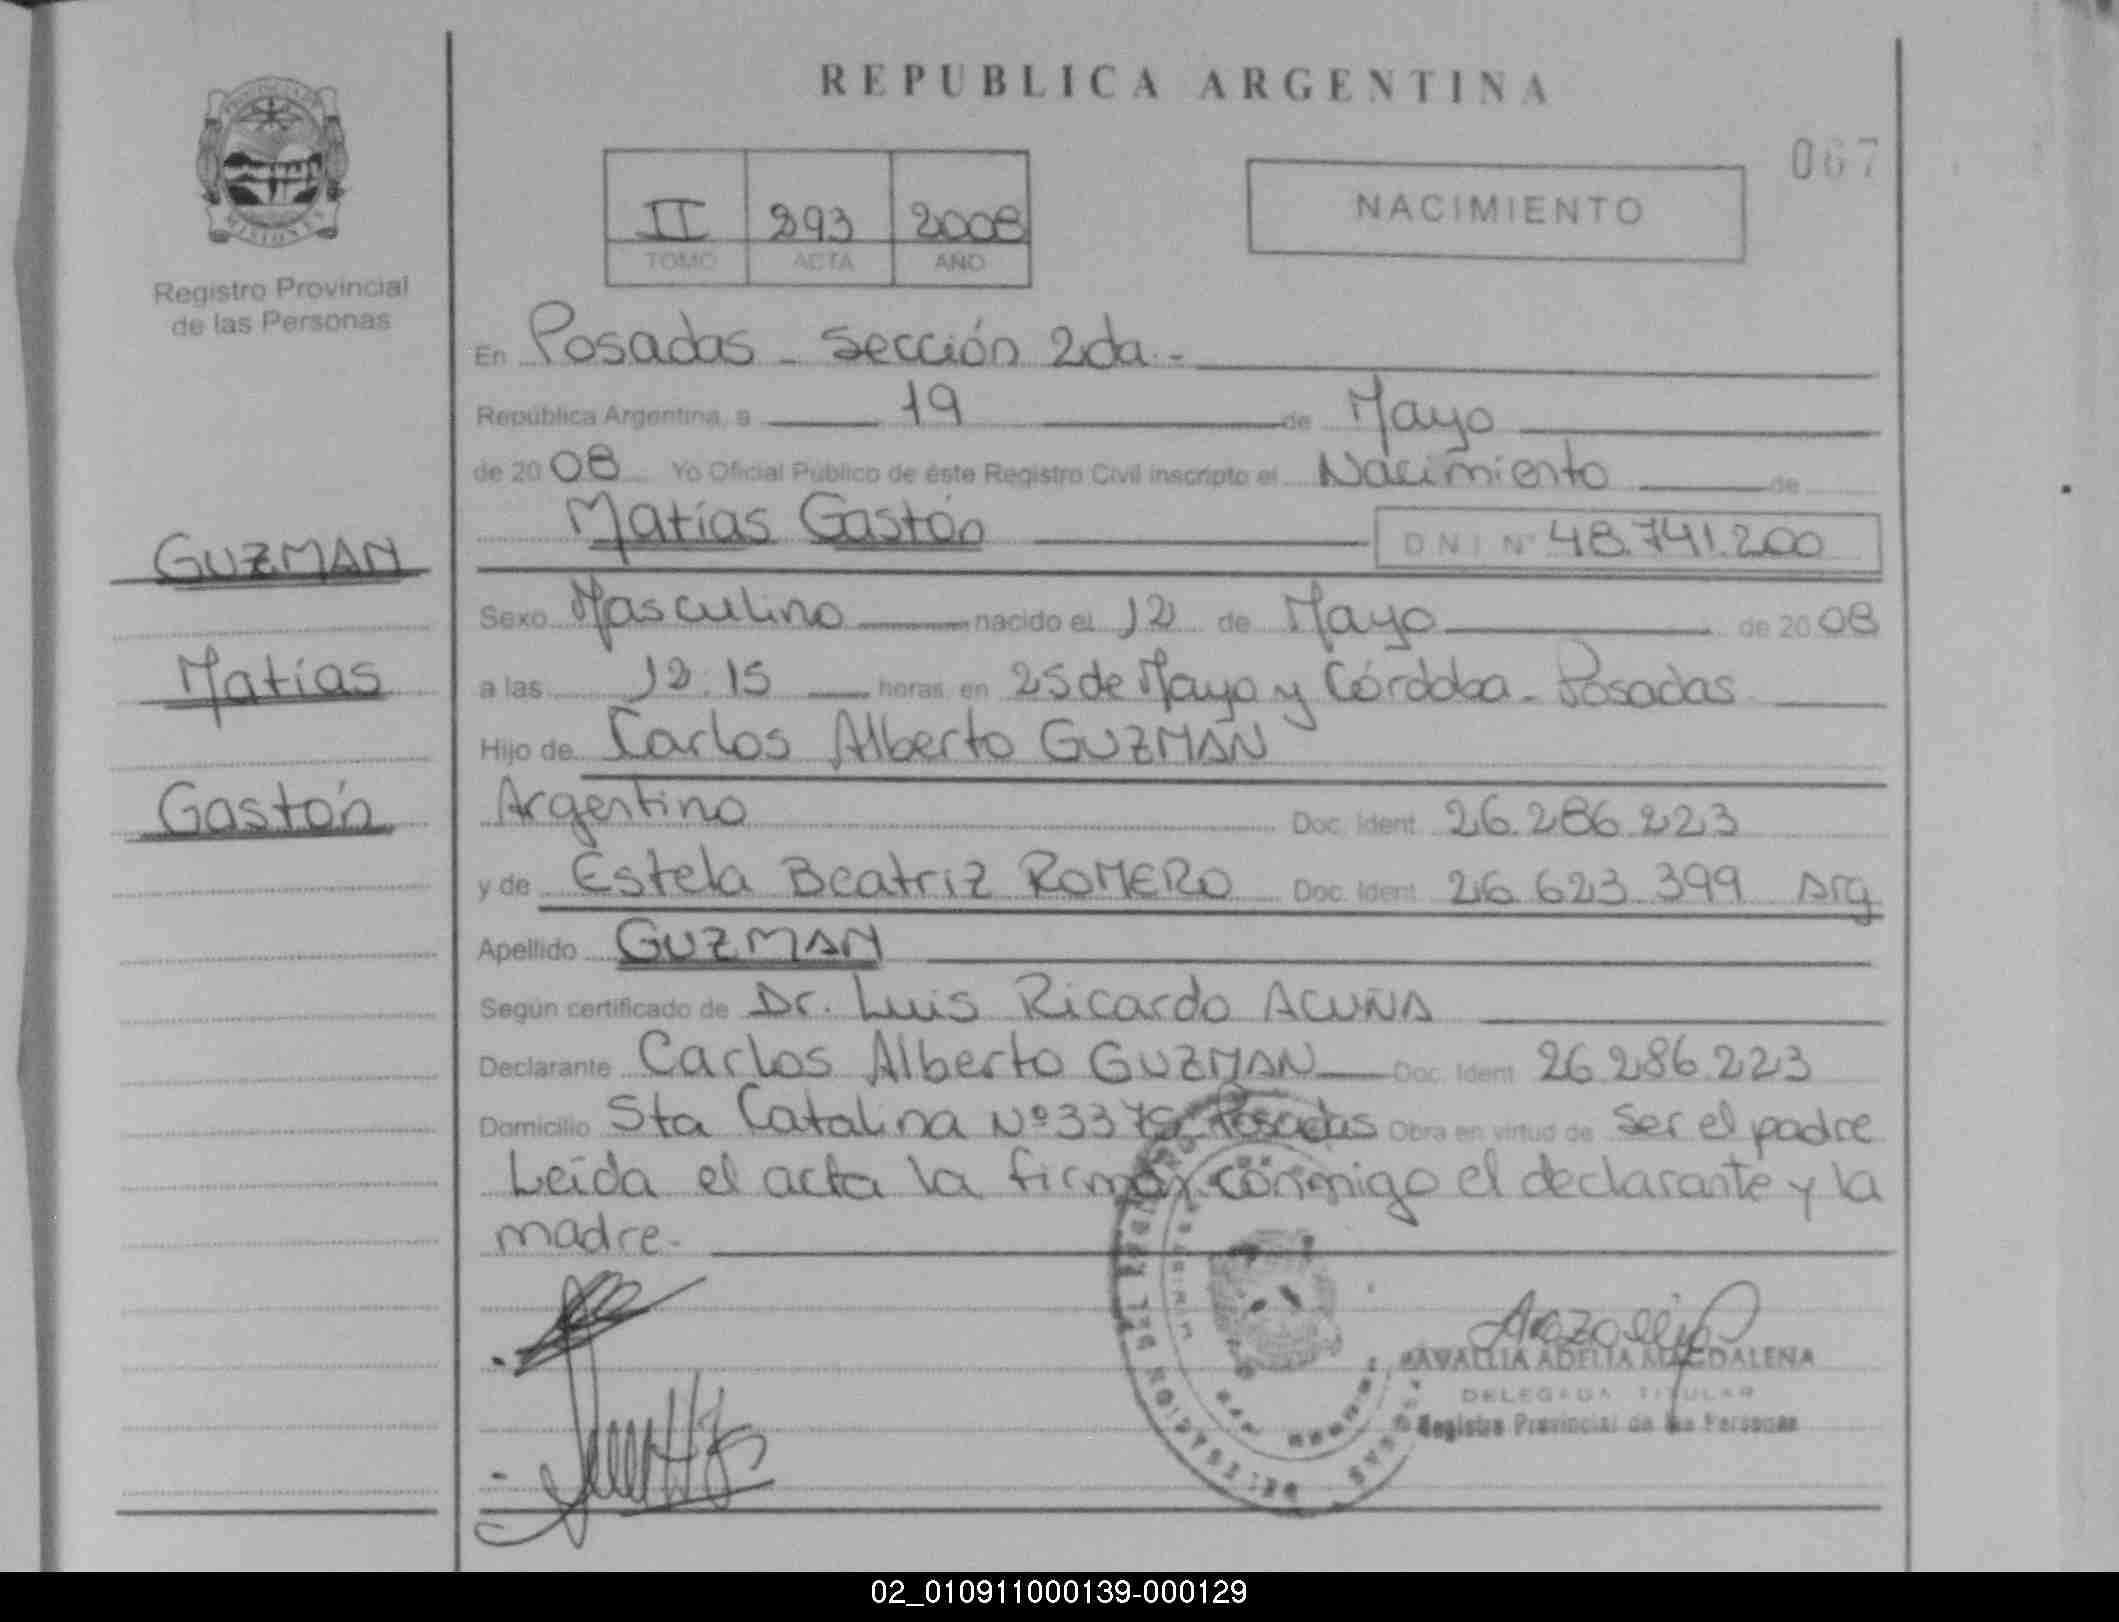 REPUBLICA ARGENTINA
067
II 293 2008
TOMO ACTA AÑO
NACIMIENTO
PROVINCIA DE
MISIONES
Registro Provincial
de las Personas
En Posadas - Sección 2da.-
República Argentina, a 19 de Mayo
de 2008 Yo Oficial Público de éste Registro Civil inscripto el Nacimiento de
Matías Gastón D N I Nº 48.741.200
GUZMAN
Matías
Gastón
Sexo Masculino nacido el 12 de Mayo de 2008
a las 12.15 horas en 25 de Mayo y Córdoba - Posadas
Hijo de Carlos Alberto GUZMAN
Argentino Doc. Ident. 26.286.223
y de Estela Beatriz ROMERO Doc. Ident. 26.623.399 Arg
Apellido GUZMAN
Según certificado de Dr. Luis Ricardo ACUÑA
Declarante Carlos Alberto GUZMAN Doc. Ident. 26.286.223
Domicilio Sta Catalina Nº 3375 Posadas Obra en virtud de ser el padre
Leída el acta la firman conmigo el declarante y la
madre.-
ADELIA MAGDALENA
DELEGADA TITULAR
Registro Provincial de las Personas
02_010911000139-000129